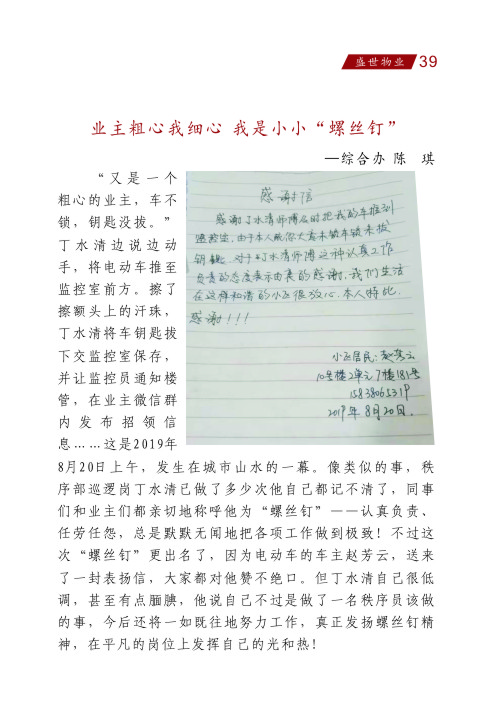 盛世物业 39
业主粗心我细心 我是小小“螺丝钉”
—综合办 陈 琪
“又是一个
粗心的业主，车不
锁，钥匙没拔。”
丁水清边说边动
手，将电动车推至
监控室前方。擦了
擦额头上的汗珠，
丁水清将车钥匙拔
下交监控室保存，
并让监控员通知楼
管，在业主微信群
内发布招领信
息……这是2019年
感谢信
感谢丁水清师傅及时把我的车推到
监控室，由于本人疏忽大意未锁车锁未拔
钥匙，对于丁水清师傅这种认真工作
负责的态度表示由衷的感谢，我们生活
在这样和谐的小区很放心，本人特此
感谢！！！
小区居民：赵芸云
10号楼2单元7楼181号
15838065319
2019年8月20日.
8月20日上午，发生在城市山水的一幕。像类似的事，秩
序部巡逻岗丁水清已做了多少次他自己都记不清了，同事
们和业主们都亲切地称呼他为“螺丝钉”——认真负责、
任劳任怨，总是默默无闻地把各项工作做到极致！不过这
次“螺丝钉”更出名了，因为电动车的车主赵芳云，送来
了一封表扬信，大家都对他赞不绝口。但丁水清自己很低
调，甚至有点腼腆，他说自己不过是做了一名秩序员该做
的事，今后还将一如既往地努力工作，真正发扬螺丝钉精
神，在平凡的岗位上发挥自己的光和热！